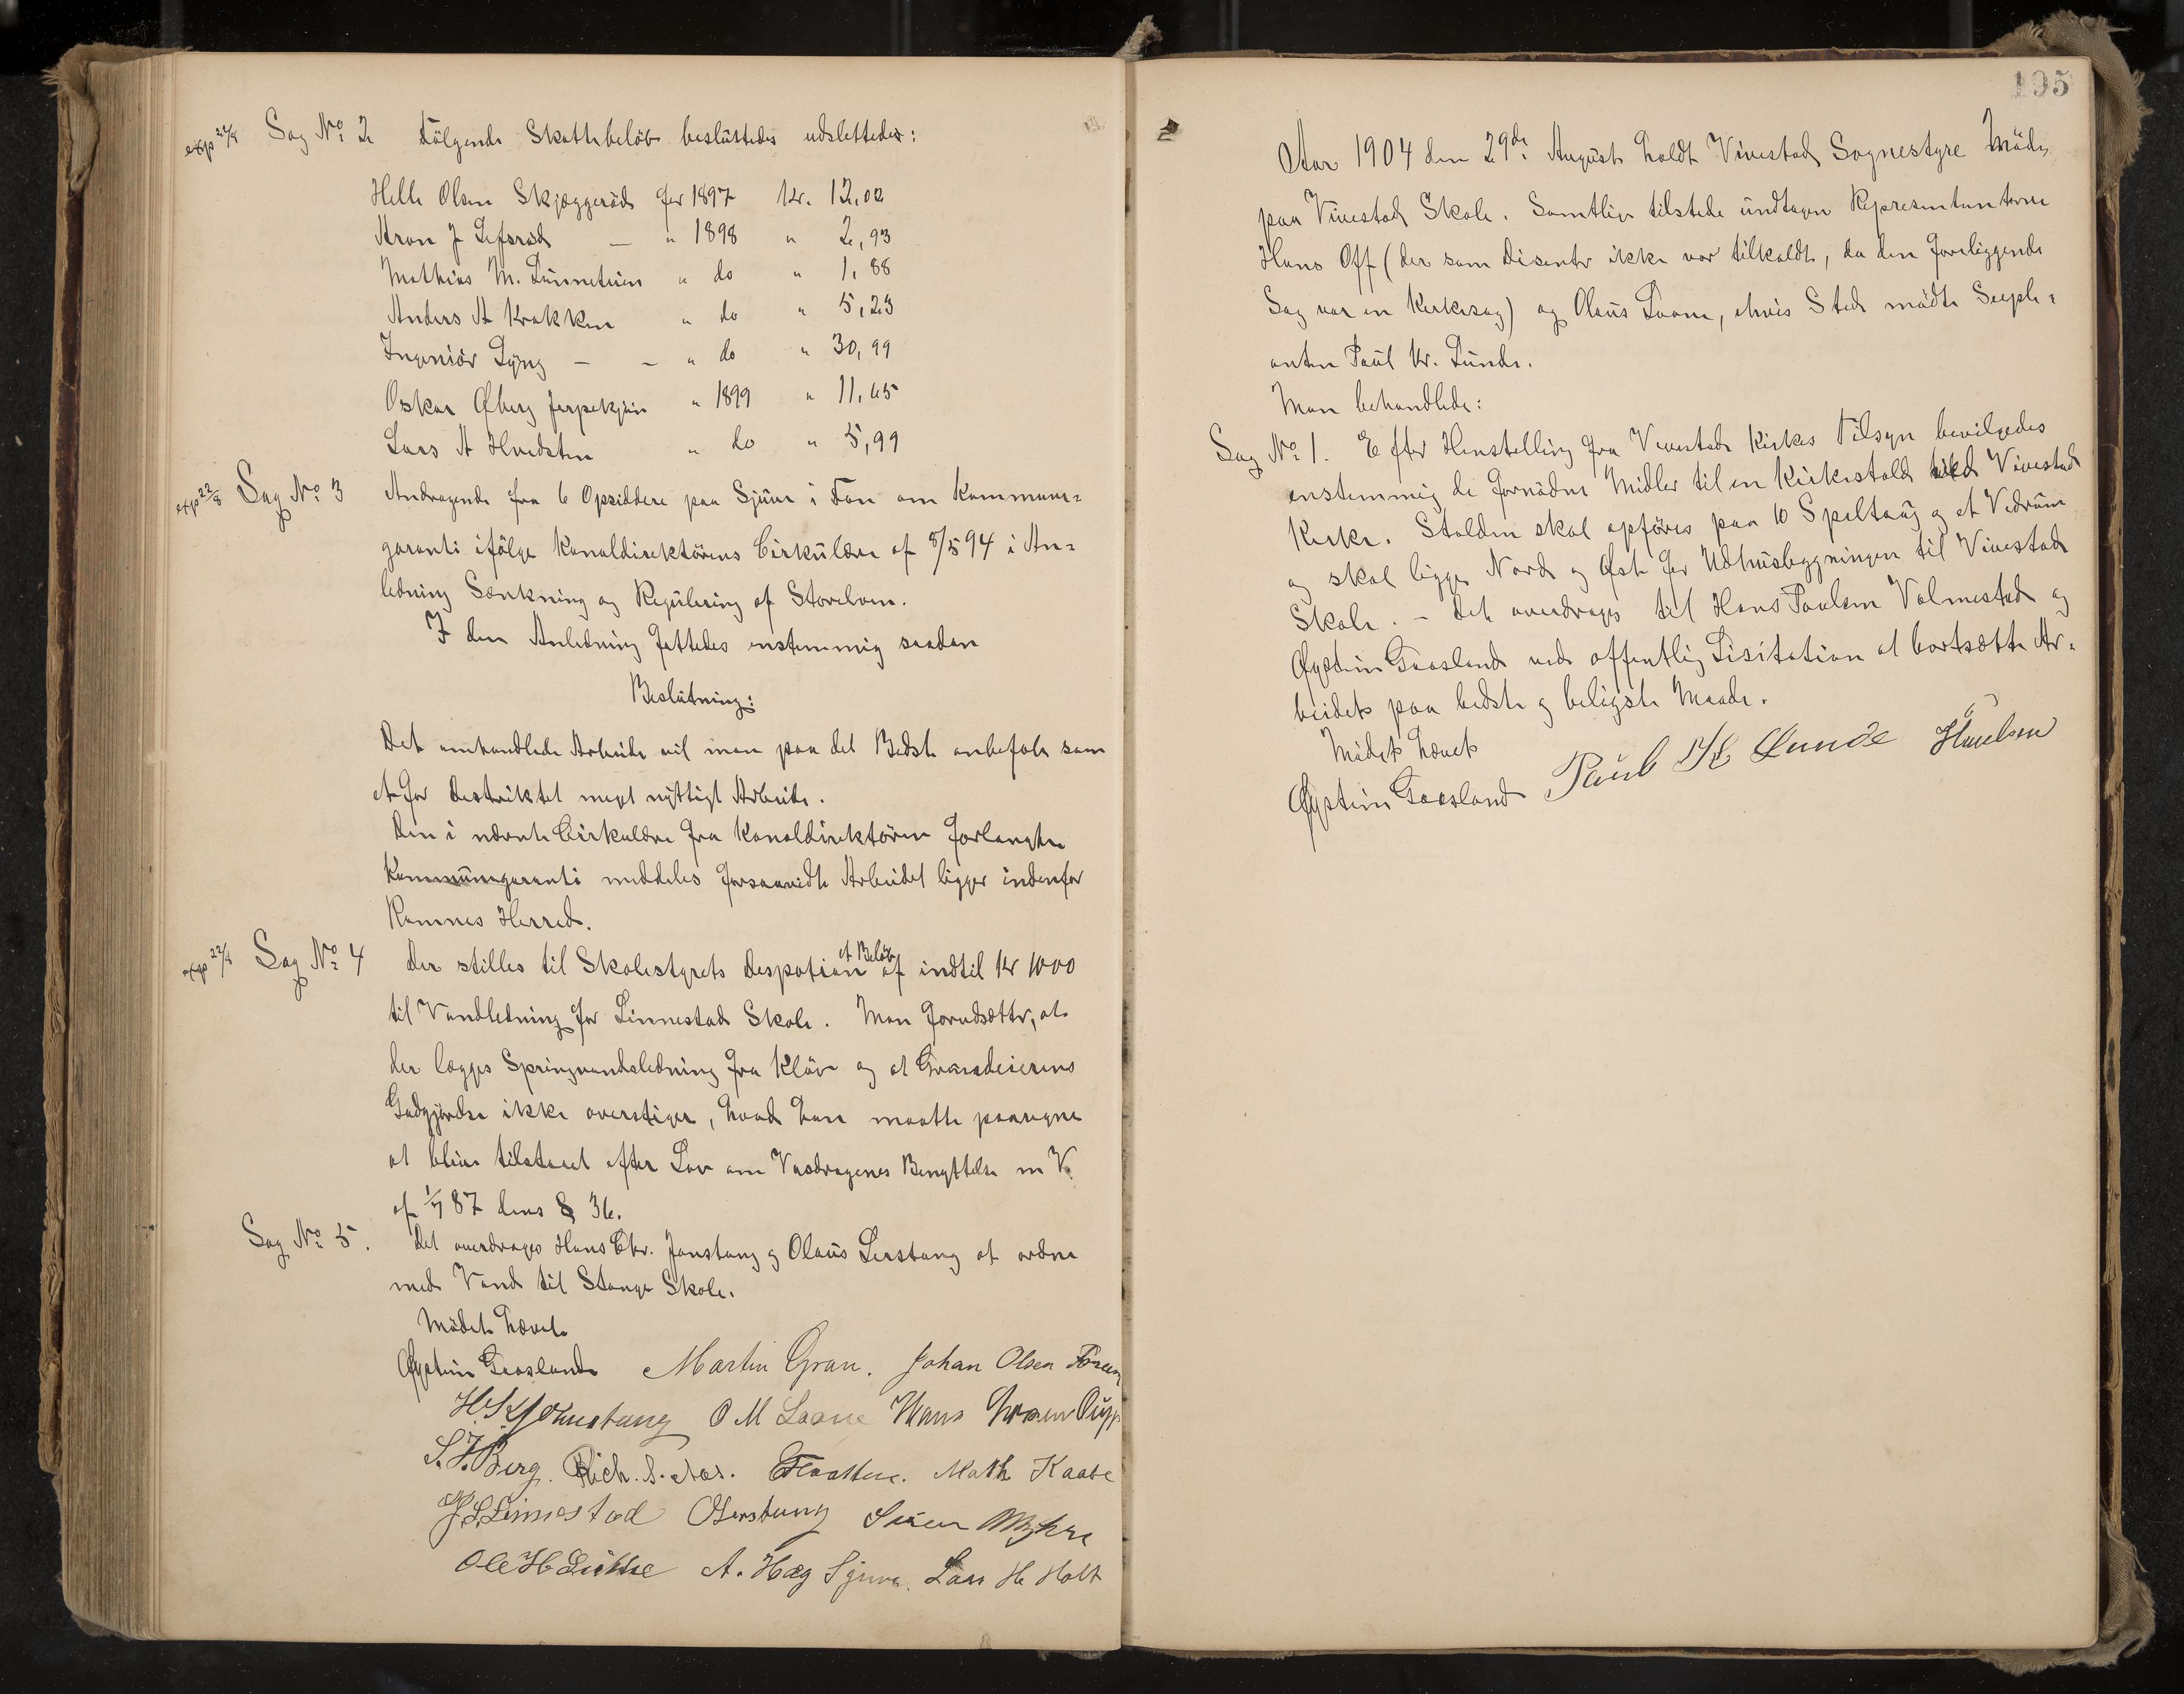 exp 22/8 Sag No. 2 Følgende Skattebeløb besluttedes udslettedes:
Helle Olsen Skjæggerød for 1897 Kr. 12,02
Aron J Lefsrød — " 1898 " 2,93
Mathias M. " do " 1,88
Anders A Krakken " do " 5,23
Ingeniør Lyng — — " do " 30,99
Oskar Øberg " 1899 " 11,65
Lars A Hvidsten " do " 5,99
exp 22/8 Sag No. 3 Andragende fra 6 Opsiddere paa Sjuve i Fon om Kommune=
garanti ifølge Kanaldirektørens Cirkulære af 8/5 94 i An=
ledning Sænkning og Regulering af Storelven.
I den Anledning fattedes enstemmig saadan
Beslutning:
Det omhandlede Arbeide vil man paa det Bedste anbefale som
et for Destriktet meget nyttigt Arbeide.
Den i nævnte Cirkulære fra Kanaldirektøren forlangte
Kommunegaranti meddeles forsaavidt Arbeidet ligger indenfor
Ramnes Herred.
exp 22/8 Sag No. 4 Der stilles til Skolestyrets Desposion et Beløb af indtil Kr 1000
til Vandledning for Linnestad Skole. Man forudsætter, at
der lægges Springvandsledning fra Kløv og at Grundeierens
Godtgjørelse ikke overstiger, hvad han maatte paaregne
at blive tilstaaet efter Lov om Vasdragenes Benyttelse m V.
af 1/7 87 dens § 36.
Sag No. 5. Det overdrages Hans Chr. Jonstang og Olaus Lerstang at ordne
med Vand til Stange Skole.
Mødet hævet.
Øystein Gaasland Martin Gran. Johan Olsen
H. Johnstang O M Laane Hans
S. J. Berg. Rich. S. Aas. Flaatten. Math Kaabe
J. L. Linnestad O Lerstang Søren Myhre
Ole H A. Hæg Sjuve. Lars H Holt
195
Aar 1904 den 29de August holdt Vivestad Sognestyre Møde
paa Vivestad Skole. Samtlige tilstede undtagen Representanterne
Hans Off (der som Disenter ikke var tilkaldt, da den foreliggende
Sag var en Kirkesag) og Olaus Laane, i hvis Sted mødte Suple=
anten Paul Kr. Lunde.
Man behandlede:
Sag No. 1. Efter Henstelling fra Vivestad Kirkes Tilsyn bevilgedes
enstemmig de fornødne Midler til en Kirkestald ved Vivestad
Kirke. Stalden skal opføres paa 10 Speltaug og et Vedrum
og skal ligge Nord og Øst for Udhusbygningen til Vivestad
Skole. – Det overdrages til Hans Paulsen Valmestad og
Øystein Gaasland ved offentlig Lisitation at bortsætte Ar=
beidet paa bedste og beligste Maade.
Mødet hævet
Øystein Gaasland Paul Kr Lunde